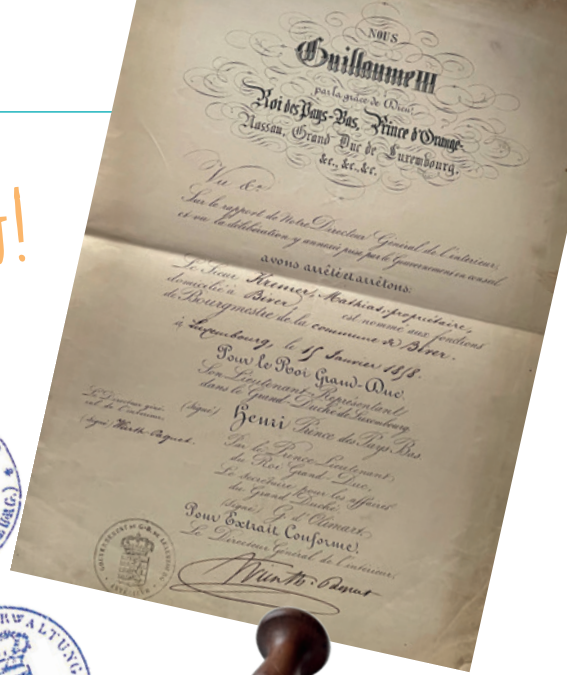 NOUS
Guillaume III
par la grâce de Dieu,
Roi des Pays-Bas, Prince d'Orange-
Nassau, Grand Duc de Luxembourg,
&c., &c., &c.
Vu &c
Sur le rapport de Notre Directeur Général de l'intérieur,
et vu la délibération y annexée prise par le Gouvernement en conseil
avons arrêté et arrêtons:
Le Sieur Kremer, Mathias, propriétaire,
domicilié à Biver est nommé aux fonctions
de Bourgmestre de la commune de Biver.
à Luxembourg, le 15 Janvier 1858.
Pour le Roi Grand-Duc,
Son Lieutenant-Représentant
dans le Grand-Duché de Luxembourg
(signé) Henri Prince des Pays-Bas
Le Directeur géné-
ral de l'intérieur
(signé) Wurth-Paquet.
Par le Prince-Lieutenant
du Roi Grand-Duc,
Le secrétaire pour les affaires
du Grand Duché,
(signé) G. d'Olimart
Pour Extrait Conforme,
Le Directeur Général de l'intérieur,
Wurth-Paquet